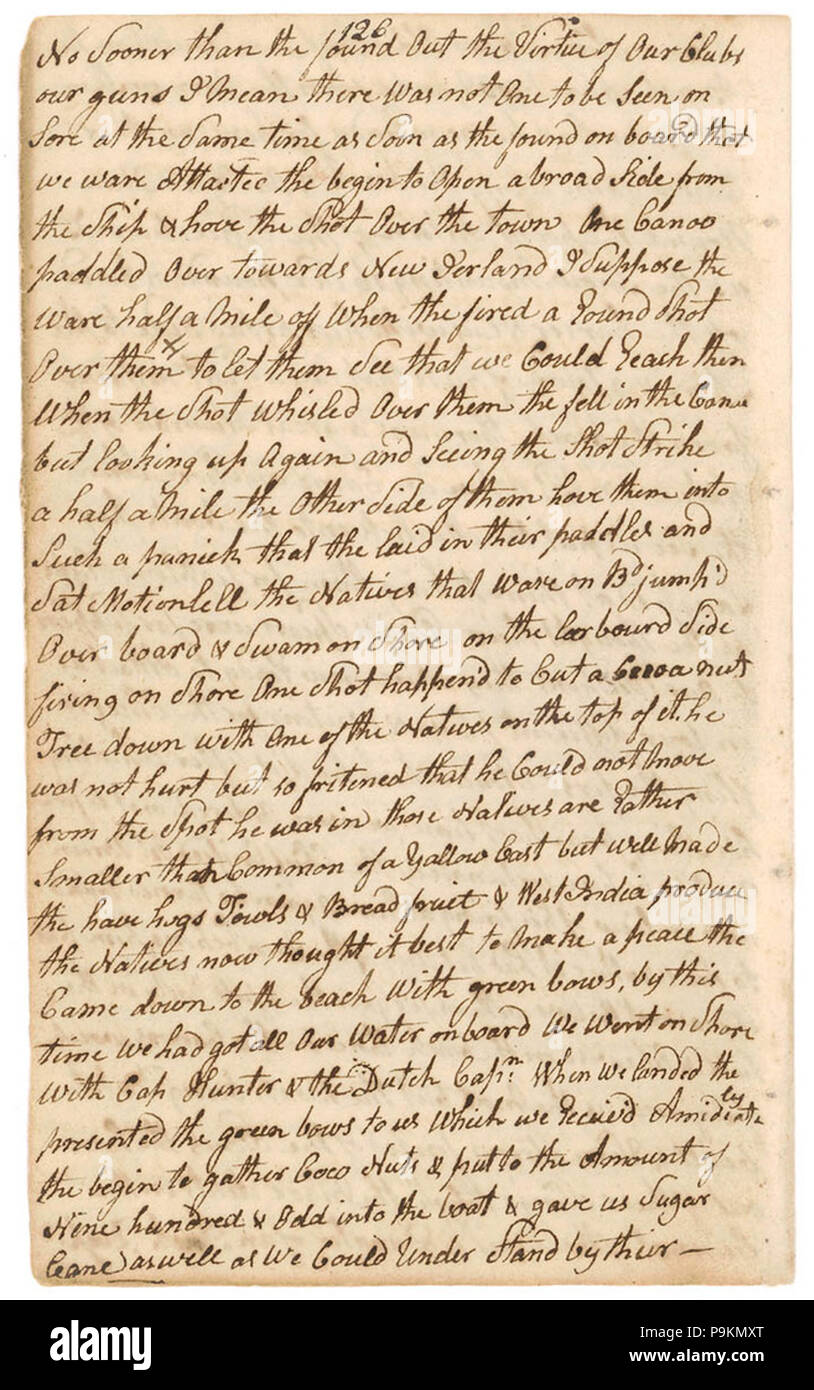 126
No Sooner than the found Out the Virtue of Our Clubs
our guns I Mean there Was not One to be Seen on
Sore at the Same time as Soon as the found on board that
we ware Attacted the begin to Open a broad Side from
the Ship & hove the Shot Over the town One Canoo
paddled Over towards New Ierland I Suppose the
Ware half a Mile off When the fired a Round Shot
Over them to let them See that we Could Reach them
When the Shot Whisled Over them the fell in the Canu
but looking up Again and Seeing the Shot Strike
a half a Mile the Other Side of them hove them into
Such a panick that the laid in their paddles and
Sat Motionlell the Natives that Ware on Bd jump'd
Over board & Swam on Shore on the larbourd Side
firing on Shore One Shot happend to Cut a Cocoa nut
Tree down with One of the Natives on the top of it. he
was not hurt but so fritened that he Could not Move
from the Spot he was in those Natives are Rather
Smaller than Common of a Yallow Cast but well Made
the have hogs Fowls & Bread fruit & West India produce
the Natives now thought it best to Make a peace the
Came down to the beach With green bows, by this
time We had got all Our Water on board We Went on Shore
With Cap Hunter & the Dutch Capm When we landed the
presented the green bows to us Which we Receivd Amidiately
the begin to gather Coco Nuts & put to the Amount of
Nine hundred & Odd into the boat & gave us Sugar
Cane as well as We Could Under Stand by thier —
alamy
Image ID: P9KMXT
www.alamy.com